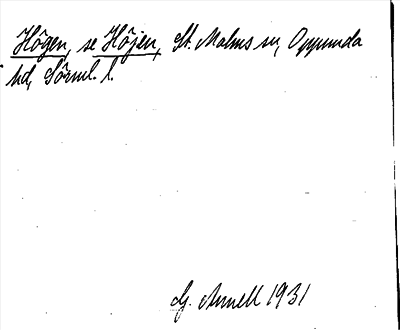 Högen, se Höjen, St. Malms sn, Oppunda
hd, Sörml. l.
G. Arnell 1931